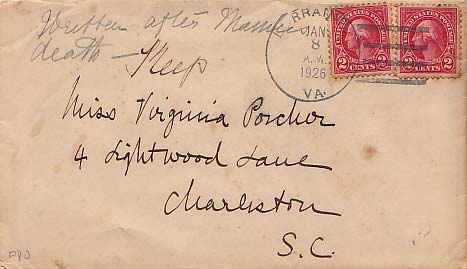 Written after Mamie
death — Keep
JAN 8
A.M.
1926
VA.
UNITED STATES POSTAGE
2 CENTS 2
2 CENTS 2
Miss Virginia Porcher
4 Lightwood Lane
Charleston
S.C.